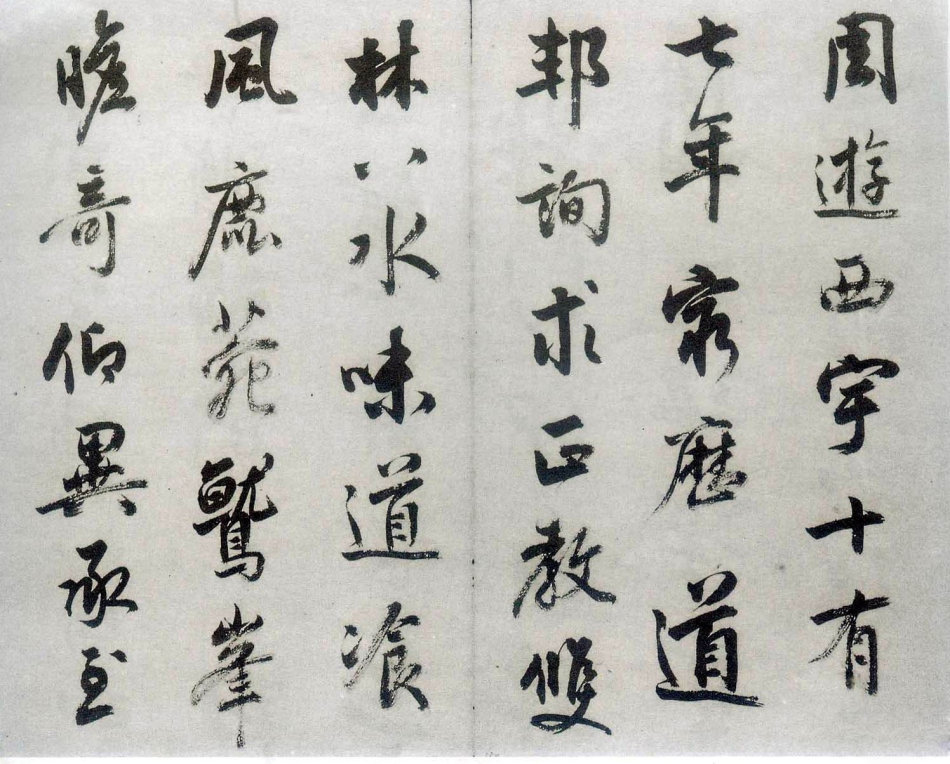 周遊西宇十有
七年窮歷道
邦詢求正教雙
林八水味道飡
風鹿菀鷲峯
瞻奇仰異承至